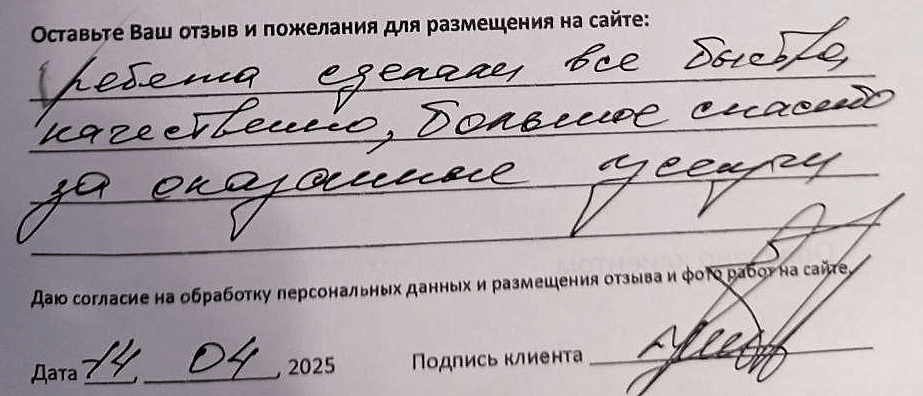 Оставьте Ваш отзыв и пожелания для размещения на сайте:
Ребята сделали все быстро,
качественно, большое спасибо
за оказанные услуги
Даю согласие на обработку персональных данных и размещения отзыва и фото работ на сайте.
Дата 14. 04. 2025 Подпись клиента